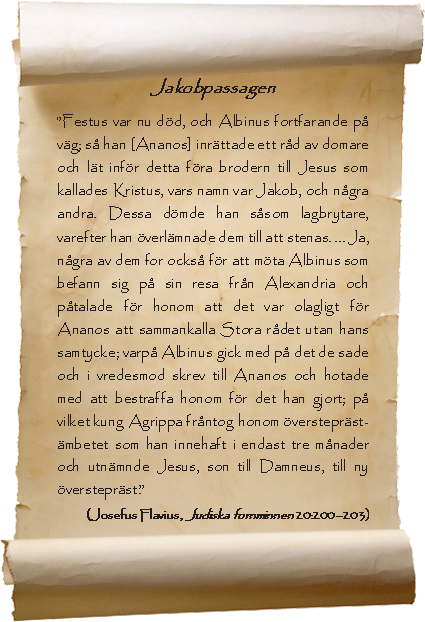 Jakobpassagen
”Festus var nu död, och Albinus fortfarande på
väg; så han [Ananos] inrättade ett råd av domare
och lät inför detta föra brodern till Jesus som
kallades Kristus, vars namn var Jakob, och några
andra. Dessa dömde han såsom lagbrytare,
varefter han överlämnade dem till att stenas. ... Ja,
några av dem for också för att möta Albinus som
befann sig på sin resa från Alexandria och
påtalade för honom att det var olagligt för
Ananos att sammankalla Stora rådet utan hans
samtycke; varpå Albinus gick med på det de sade
och i vredesmod skrev till Ananos och hotade
med att bestraffa honom för det han gjort; på
vilket kung Agrippa fråntog honom överstepräst-
ämbetet som han innehaft i endast tre månader
och utnämnde Jesus, son till Damneus, till ny
överstepräst.”
(Josefus Flavius, Judiska fornminnen 20:200–203)